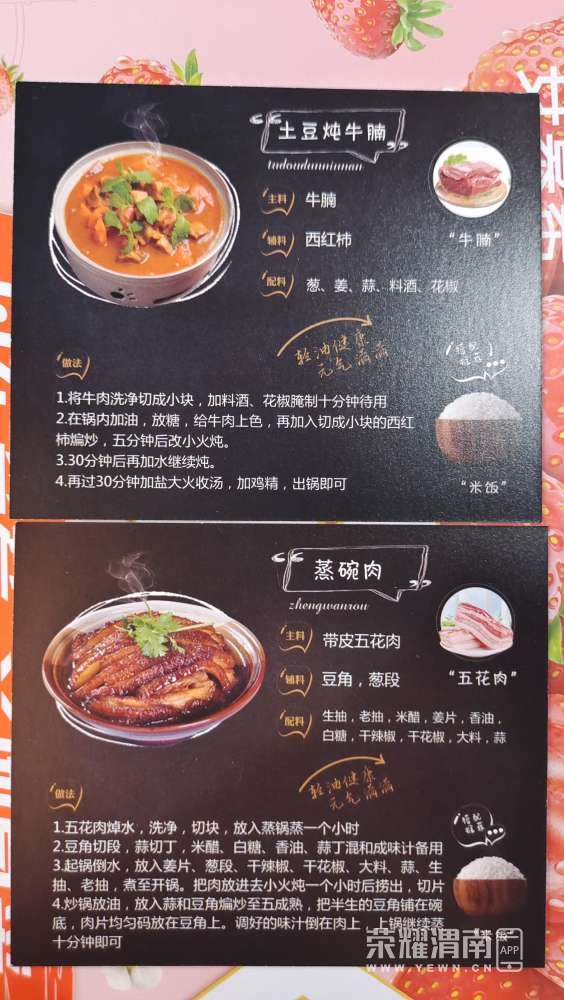 土豆炖牛腩
tudoudunniunan
主料 牛腩
辅料 西红柿
配料 葱、姜、蒜、料酒、花椒
“牛腩”
轻油健康
元气满满
搭配
做法
1.将牛肉洗净切成小块，加料酒、花椒腌制十分钟待用
2.在锅内加油，放糖，给牛肉上色，再加入切成小块的西红
柿煸炒，五分钟后改小火炖。
3.30分钟后再加水继续炖。
4.再过30分钟加盐大火收汤，加鸡精，出锅即可
“米饭”
蒸碗肉
zhengwanrou
主料 带皮五花肉
辅料 豆角，葱段
配料 生抽，老抽，米醋，姜片，香油，
白糖，干辣椒，干花椒，大料，蒜
“五花肉”
轻油健康
元气满满
搭配
做法
1.五花肉焯水，洗净，切块，放入蒸锅蒸一个小时
2.豆角切段，蒜切丁，米醋、白糖、香油、蒜丁混和成味计备用
3.起锅倒水，放入姜片、葱段、干辣椒、干花椒、大料、蒜、生
抽、老抽，煮至开锅。把肉放进去小火炖一个小时后捞出，切片
4.炒锅放油，放入蒜和豆角煸炒至五成熟，把半生的豆角铺在碗
底，肉片均匀码放在豆角上。调好的味汁倒在肉上，上锅继续蒸
十分钟即可
“米饭”
荣耀渭南 APP
WWW.YEWN.CN